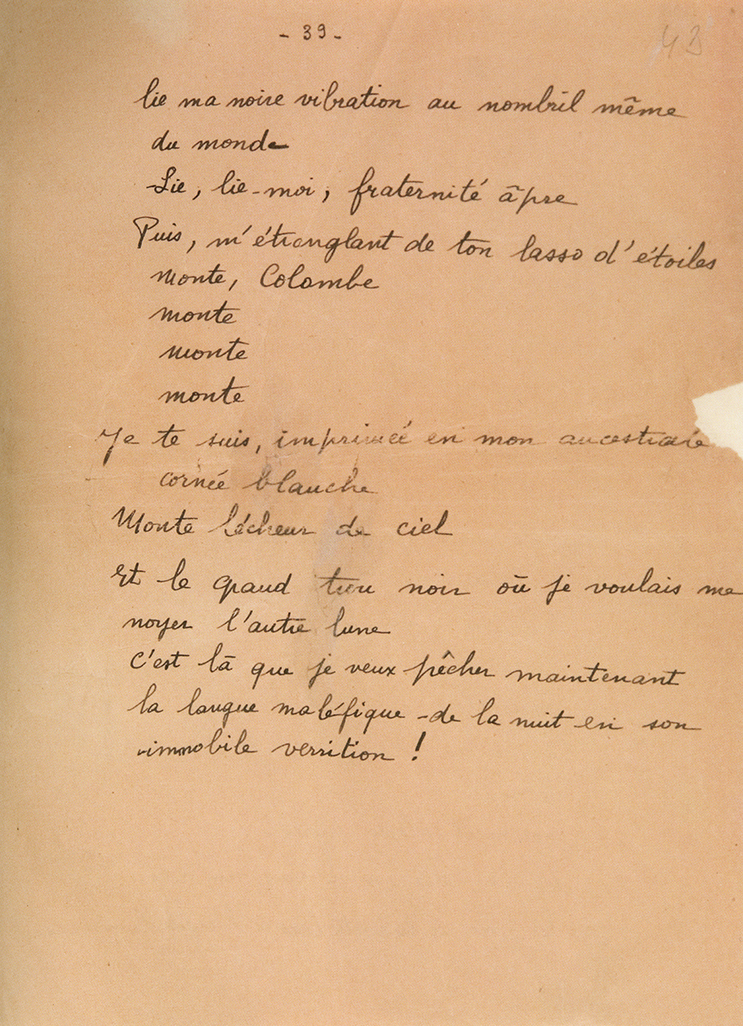 - 39 -
43
lie ma noire vibration au nombril même
du monde
Lie, lie-moi, fraternité âpre
Puis, m'étranglant de ton lasso d'étoiles
monte, Colombe
monte
monte
monte
Je te suis, imprimée en mon ancestrale
cornée blanche
Monte lécheur de ciel
Et le grand trou noir où je voulais me
noyer l'autre lune
c'est là que je veux pêcher maintenant
la langue maléfique de la nuit en son
immobile verrition !